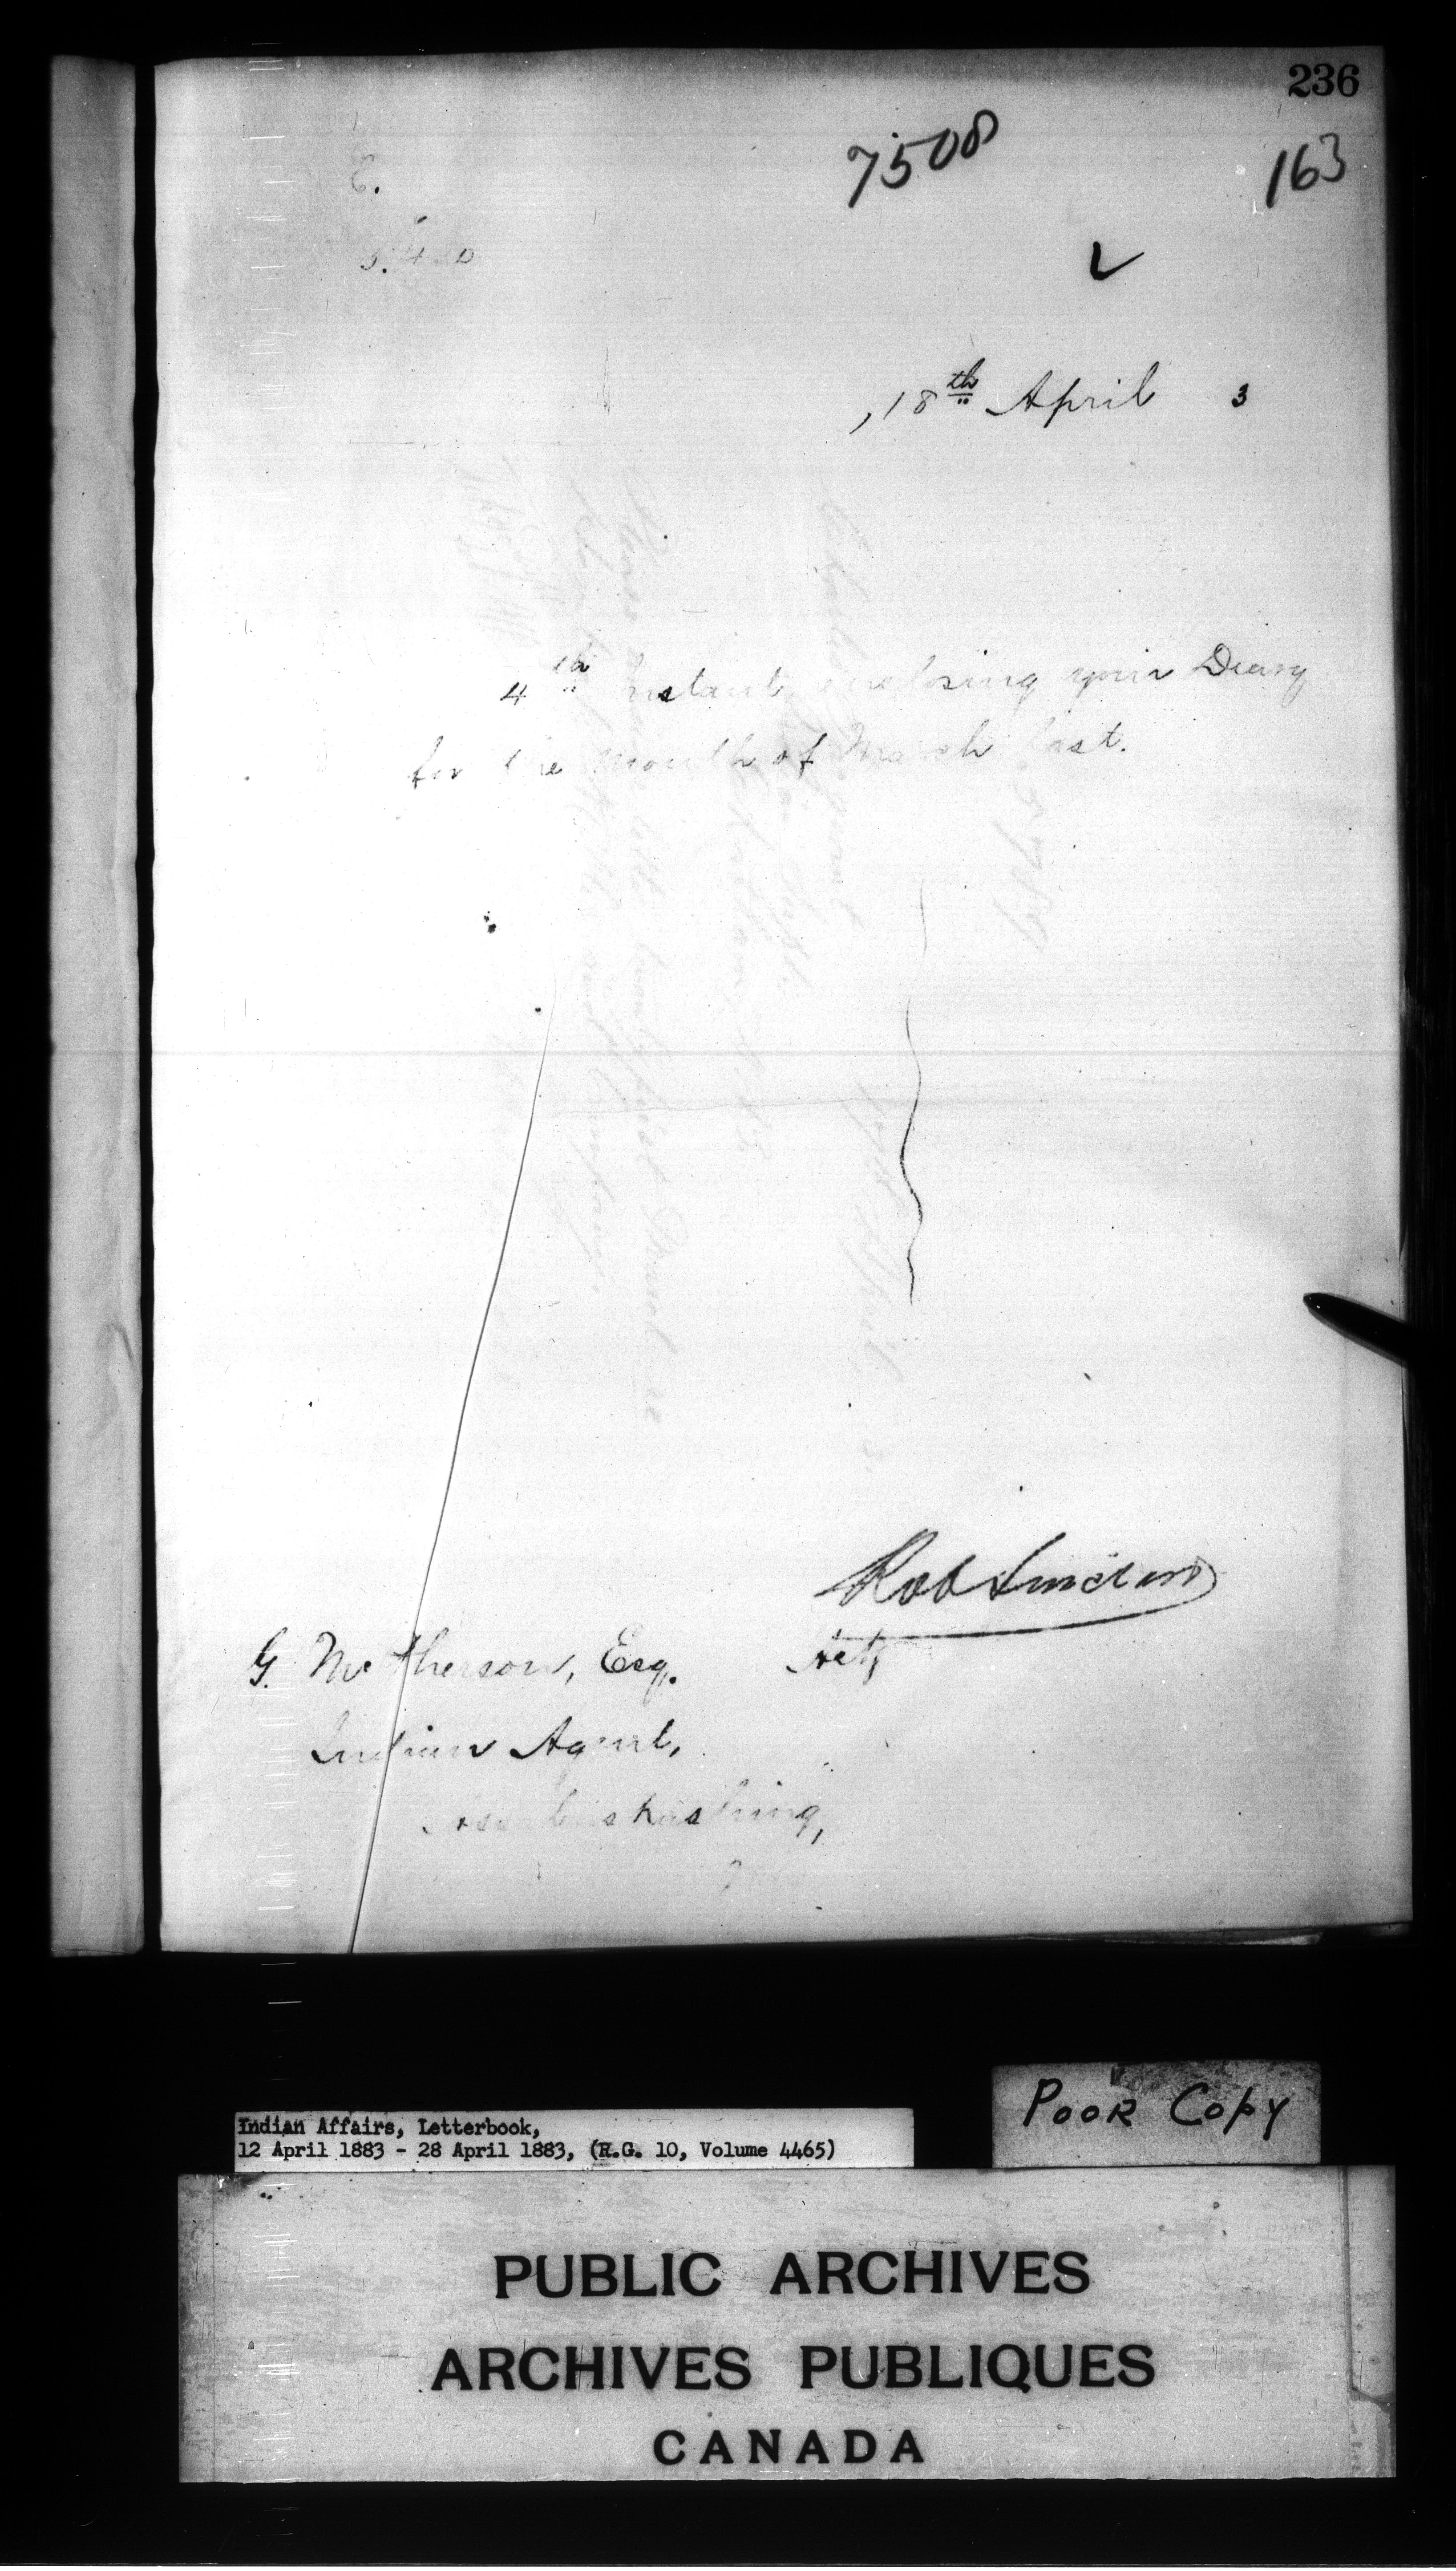 236
7508
163
E.
, 18th April 3
4th instant, enclosing your Diary
for the month of March last.
Rob Sinclair
Actg
G. McPherson, Esq.
Indian Agent,
Assabaskashing,
Poor Copy
Indian Affairs, Letterbook,
12 April 1883 - 28 April 1883, (R.G. 10, Volume 4465)
PUBLIC ARCHIVES
ARCHIVES PUBLIQUES
CANADA